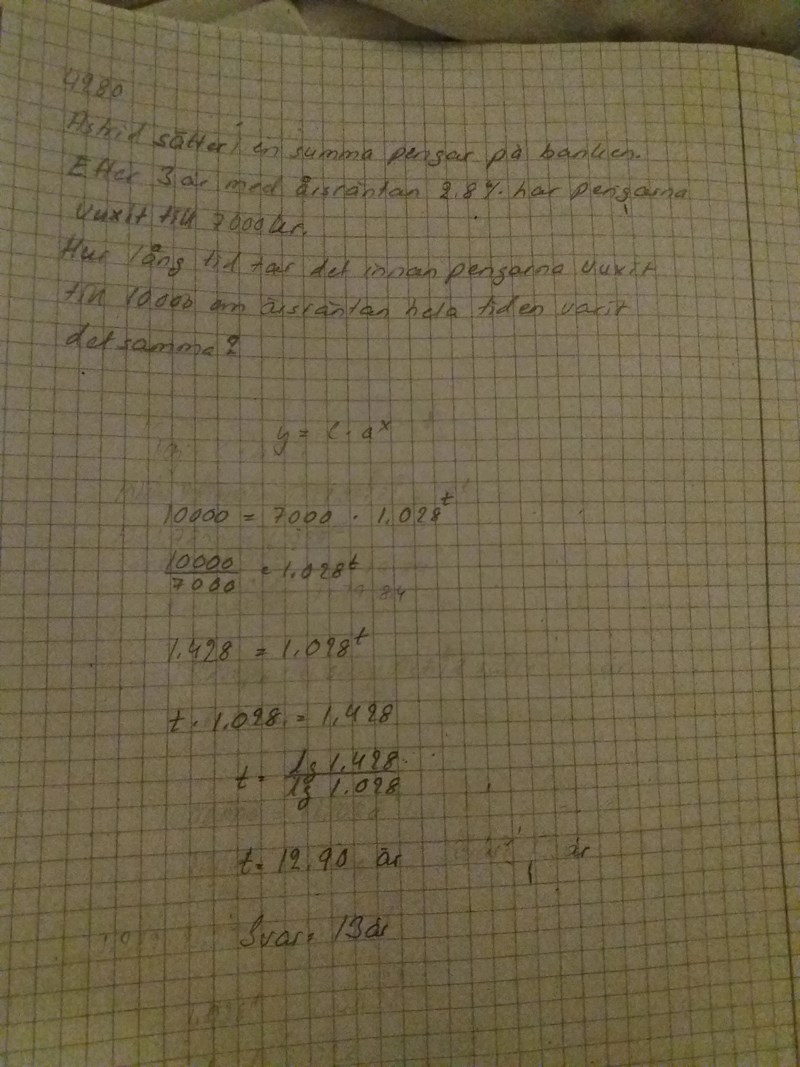 4280
Astrid sätter in en summa pengar på banken.
Efter 3 år med årsräntan 2.8% har pengarna
vuxit till 7000 kr.
Hur lång tid tar det innan pengarna vuxit
till 10000 om årsräntan hela tiden varit
detsamma?
y = C · a^x
10000 = 7000 · 1,028^t
10000/7000 = 1.028^t
1.428 = 1,028^t
t · 1.028 = 1,428
t = lg 1.428 / lg 1.028
t = 12,90 år
år
Svar: 13 år